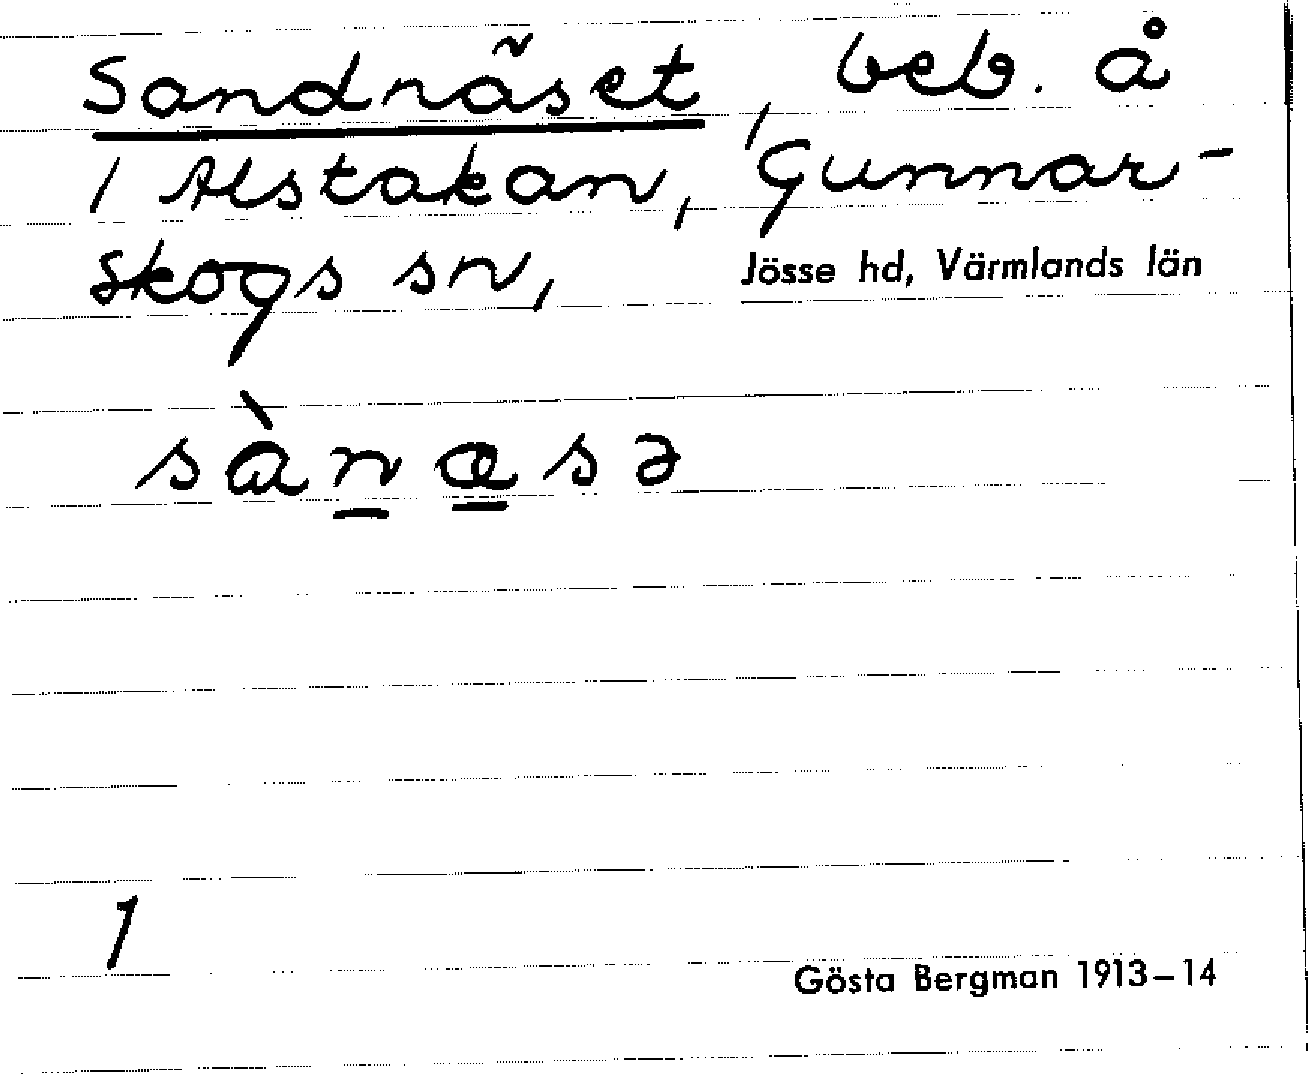 Sandnäset, beb. å
1 Alstakan, Gunnar-
skogs sn, Jösse hd, Värmlands län
sàn̲æ̲sə
1
Gösta Bergman 1913–14